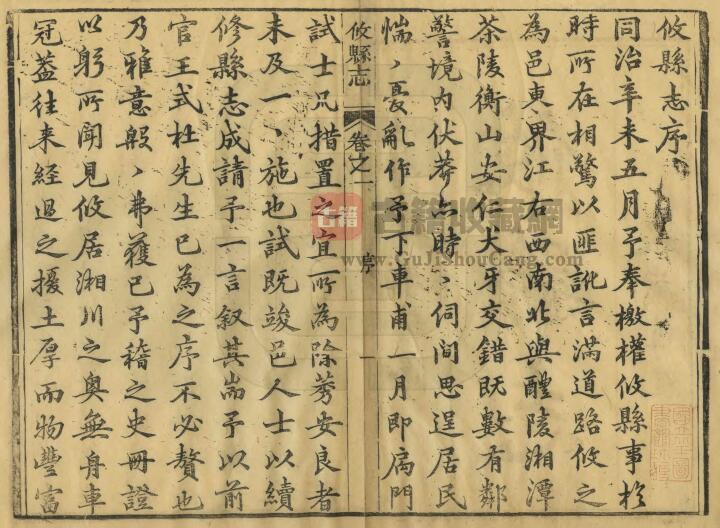 攸縣志序
同治辛未五月予奉檄權攸縣事於
時所在相驚以匪訛言滿道路攸之
為邑東界江右西南北與醴陵湘潭
茶陵衡山安仁犬牙交錯既數有鄰
警境內伏莽亦時、伺間思逞居民
惴、憂亂作予下車甫一月即扃門
攸縣志
卷之一
序
一
試士凡措置之宜所為除莠安良者
未及一、施也試既竣邑人士以續
修縣志成請予一言叙其耑予以前
官王式杜先生已為之序不必贅也
乃雅意殷、弗獲已予稽之史冊證
以躬所聞見攸居湘川之奧無身車
冠蓋往来經過之擾土厚而物豐富
古籍
古籍收藏網
www.GuJiShouCang.com